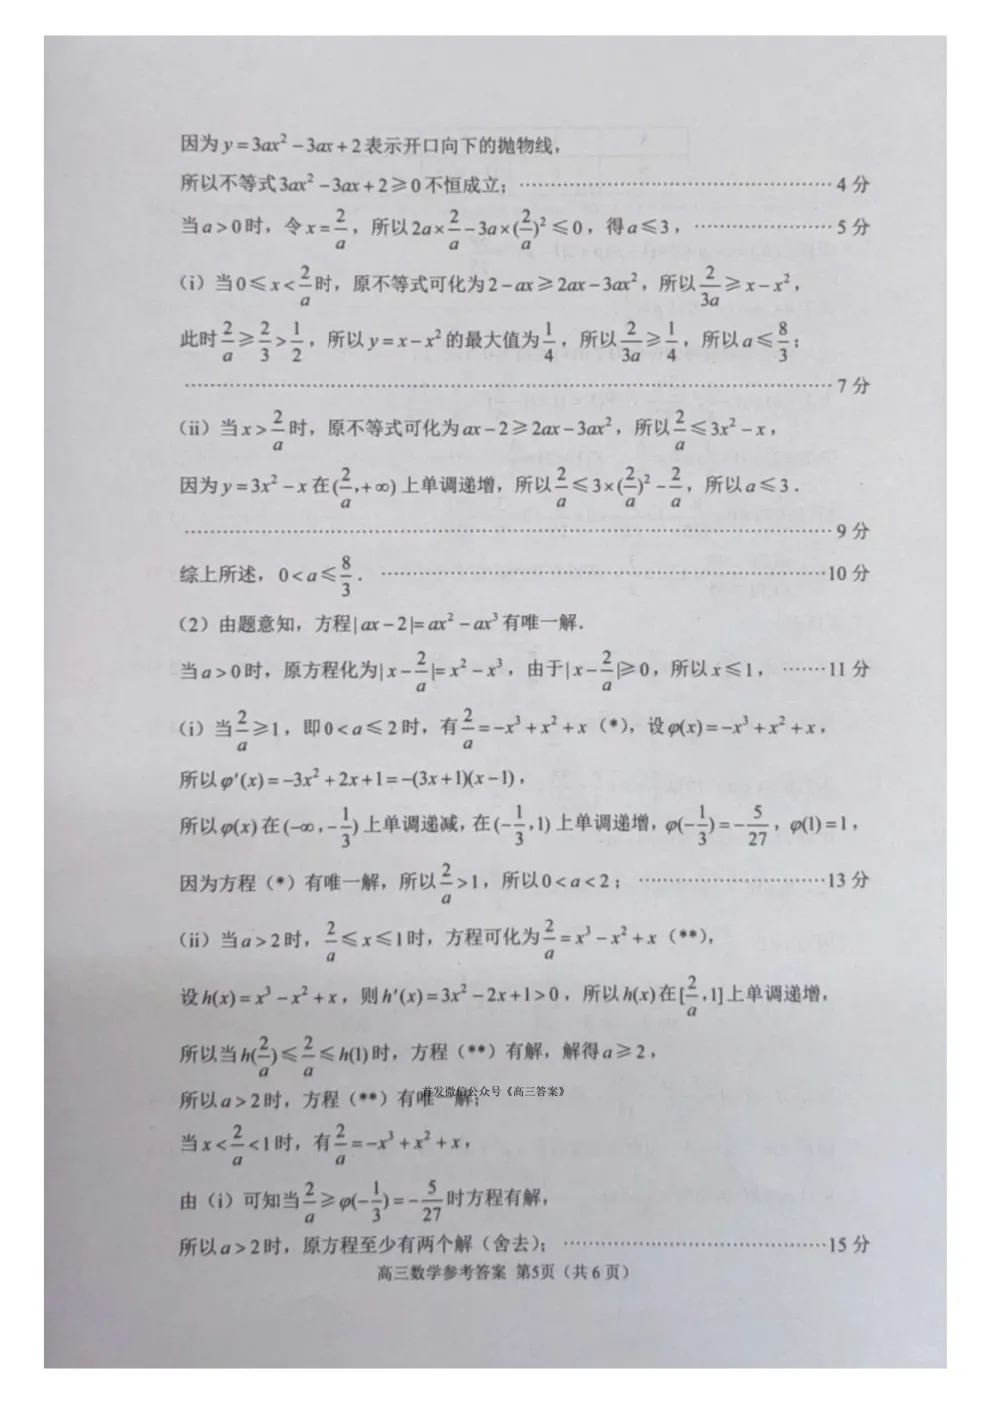 因为 y=3ax²-3ax+2 表示开口向下的抛物线,
所以不等式 3ax²-3ax+2≥0 不恒成立; ……………… 4 分
当 a>0 时, 令 x=2/a, 所以 2a×2/a-3a×(2/a)²≤0, 得 a≤3, ……………… 5 分
(i) 当 0≤x<2/a 时, 原不等式可化为 2-ax≥2ax-3ax², 所以 2/3a≥x-x²,
此时 2/a≥2/3>1/2, 所以 y=x-x² 的最大值为 1/4, 所以 2/3a≥1/4, 所以 a≤8/3;
……………… 7 分
(ii) 当 x>2/a 时, 原不等式可化为 ax-2≥2ax-3ax², 所以 2/a≤3x²-x,
因为 y=3x²-x 在 (2/a,+∞) 上单调递增, 所以 2/a≤3×(2/a)²-2/a, 所以 a≤3.
……………… 9 分
综上所述, 0<a≤8/3. ……………… 10 分
(2) 由题意知, 方程 |ax-2|=ax²-ax³ 有唯一解.
当 a>0 时, 原方程化为 |x-2/a|=x²-x³, 由于 |x-2/a|≥0, 所以 x≤1, ……… 11 分
(i) 当 2/a≥1, 即 0<a≤2 时, 有 2/a=-x³+x²+x (*), 设 φ(x)=-x³+x²+x,
所以 φ′(x)=-3x²+2x+1=-(3x+1)(x-1),
所以 φ(x) 在 (-∞,-1/3) 上单调递减, 在 (-1/3,1) 上单调递增, φ(-1/3)=-5/27, φ(1)=1,
因为方程 (*) 有唯一解, 所以 2/a>1, 所以 0<a<2; ……………… 13 分
(ii) 当 a>2 时, 2/a≤x≤1 时, 方程可化为 2/a=x³-x²+x (**),
设 h(x)=x³-x²+x, 则 h′(x)=3x²-2x+1>0, 所以 h(x) 在 [2/a,1] 上单调递增,
所以当 h(2/a)≤2/a≤h(1) 时, 方程 (**) 有解, 解得 a≥2,
首发微信公众号《高三答案》
所以 a>2 时, 方程 (**) 有唯一解;
当 x<2/a<1 时, 有 2/a=-x³+x²+x,
由 (i) 可知当 2/a≥φ(-1/3)=-5/27 时方程有解,
所以 a>2 时, 原方程至少有两个解 (舍去); ……………… 15 分
高三数学参考答案 第5页 (共 6 页)